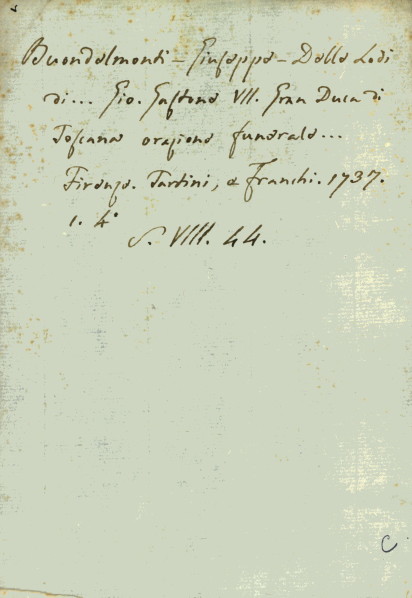 Buondelmonti - Giuseppe - Delle Lodi
di... Gio. Gastone VII. Gran Duca di
Toscana orazione funerale...
Firenze. Tartini, e Franchi. 1737.
1. 4°
S. VIII. 44.
C